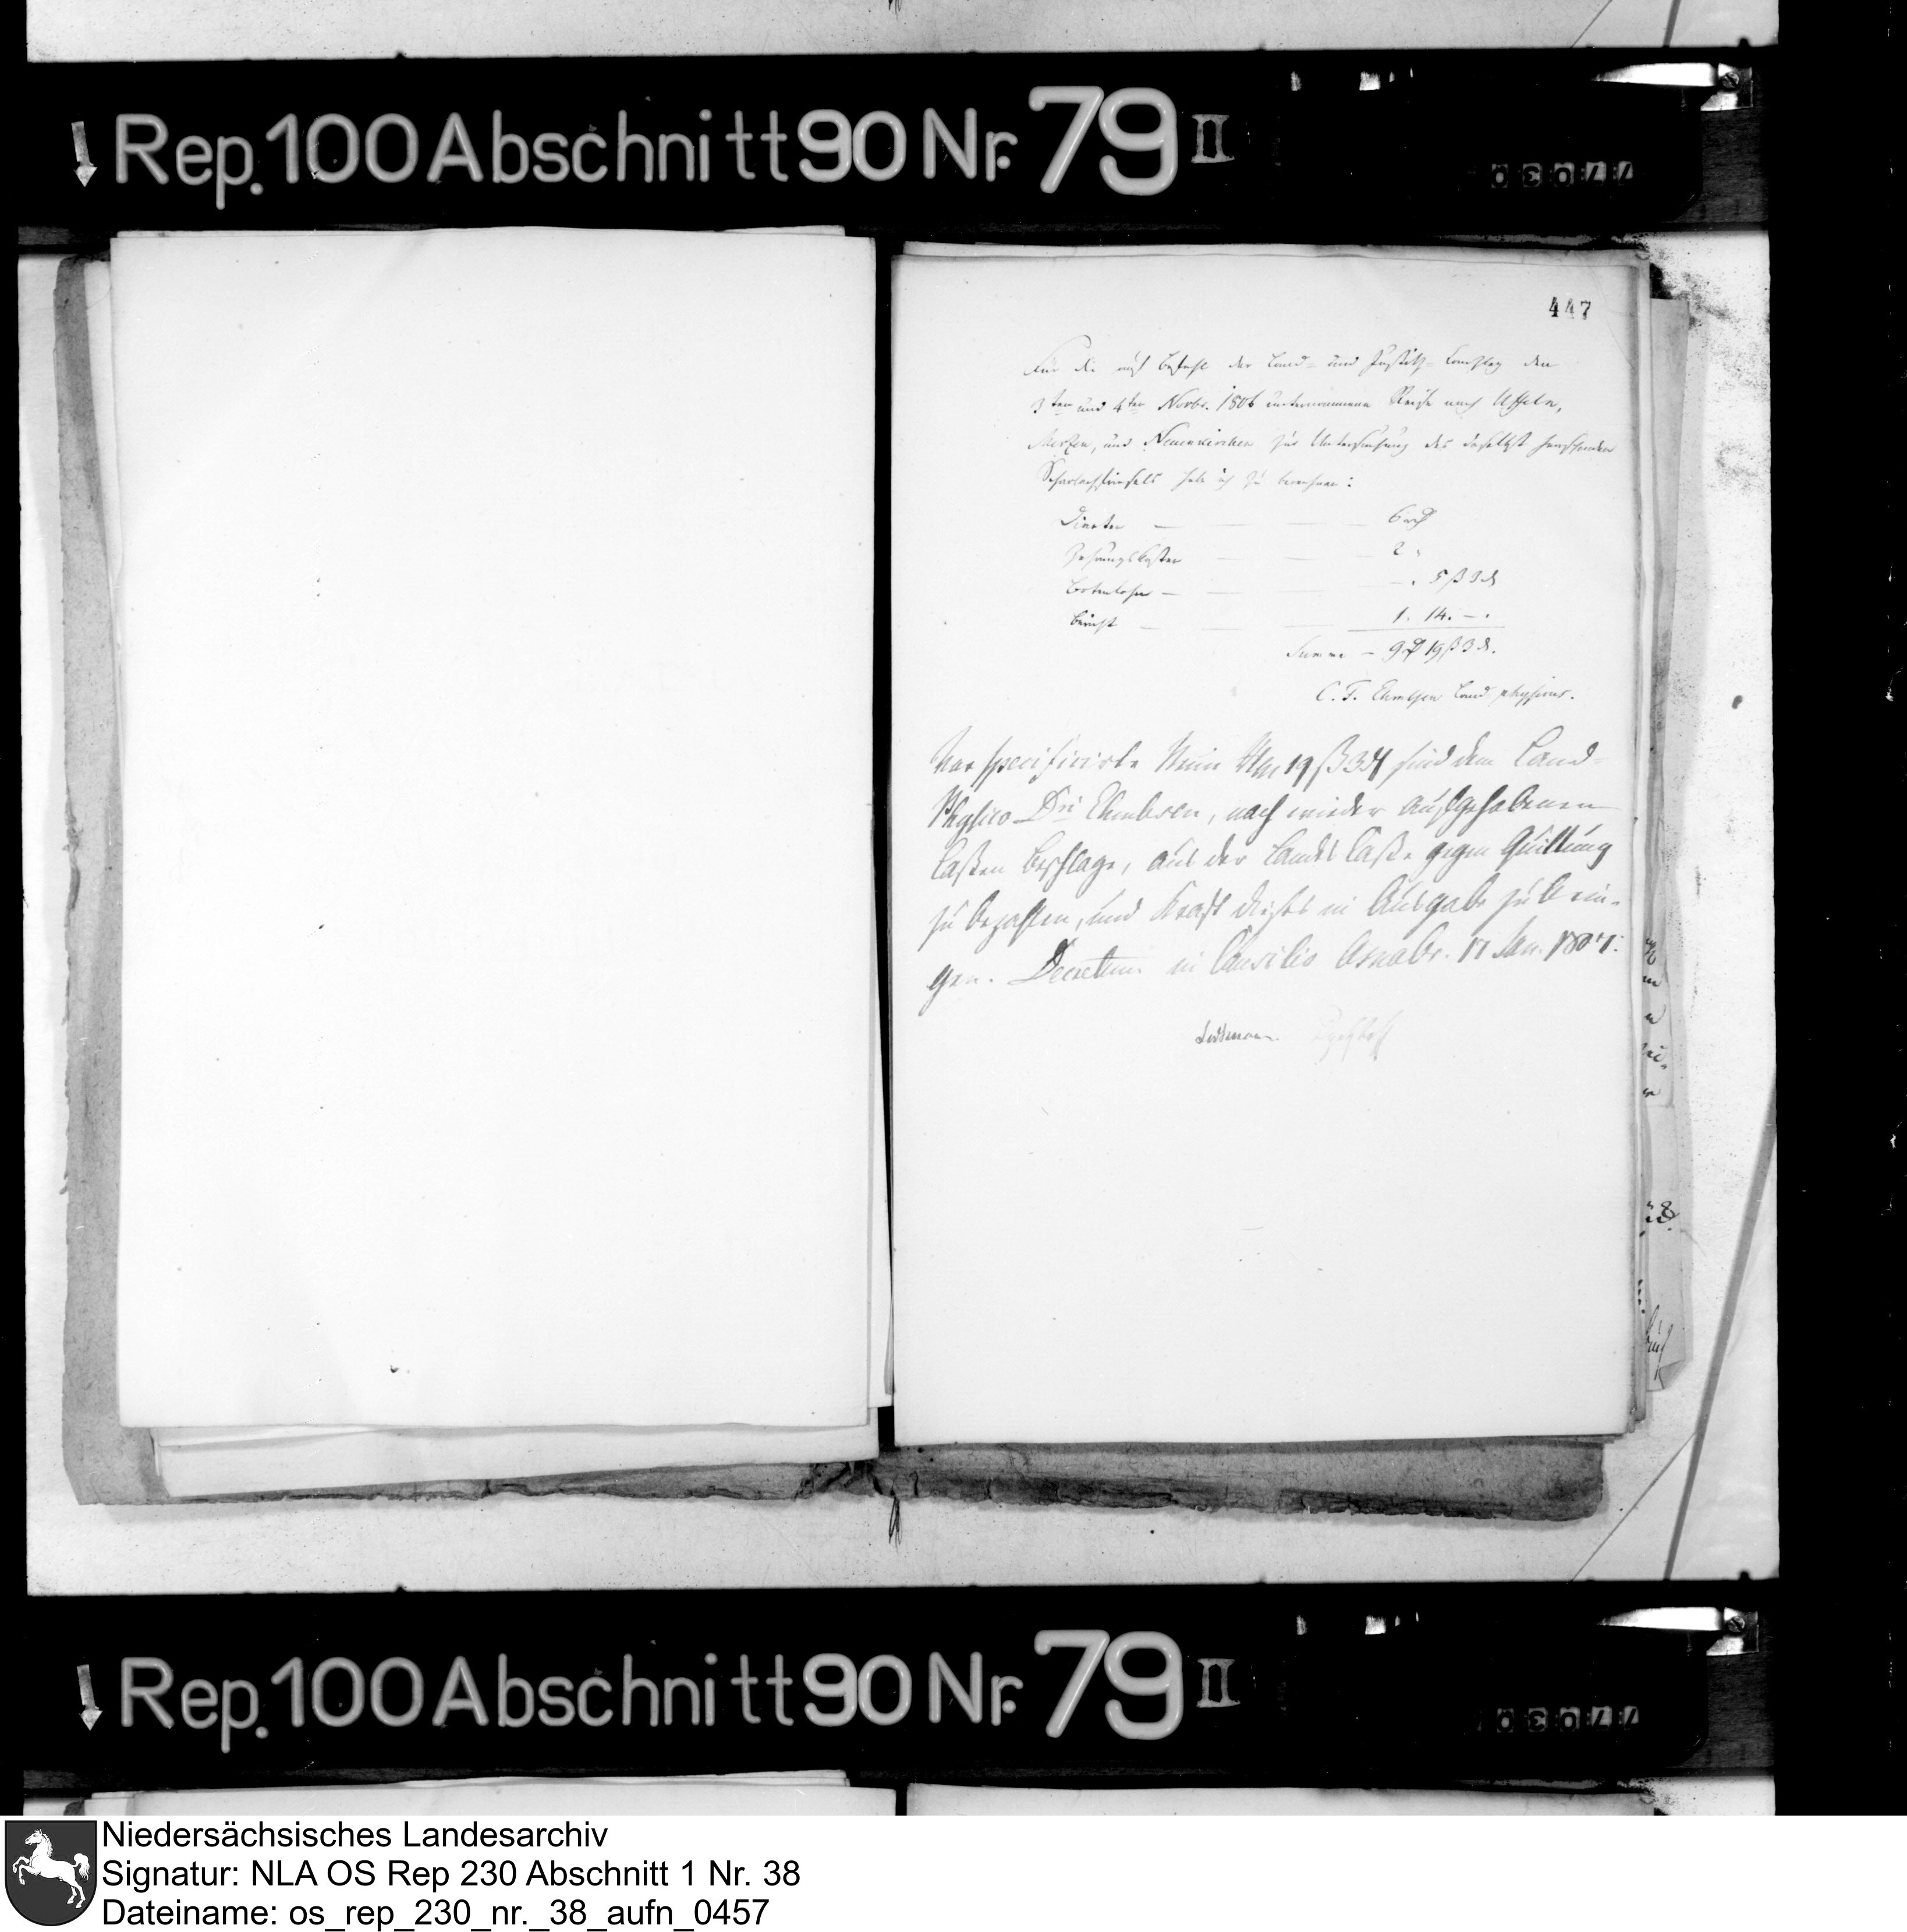 Rep. 100 Abschnitt 90 Nr. 79 II
77030
447
Für die auf Befehl der Land- und Justitz-Canzley den
3ten und 4ten Novbr. 1806 unternommene Reise nach Uffeln,
Merzen, und Neuenkirchen zur Untersuchung des daselbst herrschenden
Scharlachfriesels habe ich zu berechnen:
Diaeten — — — 6 rt
Zehrungskosten — — — 2 "
Botenlohn — — — 5 ß 3 d
Bericht — — — 1. 14. —.
Summa — 9 rt 19 ß 3 d.
C. F. Ehmbsen Landphysicus.
Vorspecificirte Neun rt 19 ß 3 d sind dem Land-
Physico Dri Ehmbsen, nach wieder aufgehobenen
Cassen Beschlage, aus der Landes Casse gegen Quittung
zu bezahlen, und Kraft dieses in Ausgabe zu brin-
gen. Decretum in Consilio Osnabr. 17 Jan. 1807.
Rep. 100 Abschnitt 90 Nr. 79 II
77030
Niedersächsisches Landesarchiv
Signatur: NLA OS Rep 230 Abschnitt 1 Nr. 38
Dateiname: os_rep_230_nr._38_aufn_0457